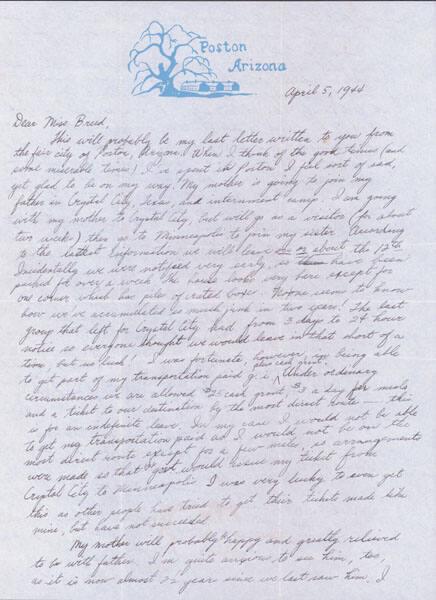 Poston
Arizona
April 5, 1944
Dear Miss Breed,
This will probably be my last letter written to you from
the fair city of Poston, Arizona! When I think of the good times (and
some miserable times) I've spent in Poston I feel sort of sad,
yet glad to be on my way. My mother is going to join my
father in Crystal City, Texas, and internment camp. I am going
with my mother to Crystal City, but will go as a visitor (for about
two weeks) then go to Minneapolis to join my sister. According
to the latest information we will leave on or about the 12th.
Incidentally we were notified very early so have been
packed for over a week. The house looks very bare except for
one corner which has piles of crated boxes. None seem to know
how we've accumulated so much junk in two years! The last
group that left for Crystal City had from 3 days to 24 hour
notice so everyone thought we would leave in that short of a
time, but no luck! I was fortunate, however, in being able
to get part of my transportation paid
plus cash grant.
Under ordinary
circumstances we are allowed $25 cash grant, $3 a day for meals
and a ticket to our destination by the most direct route – this
is for an indefinite leave. In my case I would not be able
to get my transportation paid as I would not be on the
most direct route except for a few miles, so arrangements
were made so that gov't would issue my ticket from
Crystal City to Minneapolis. I was very lucky to even get
this as other people have tried to get their tickets made like
mine, but have not succeeded.
My mother will probably be happy and greatly relieved
to be with father. I'm quite anxious to see him, too,
as it is now almost 2½ year since we last saw him. I